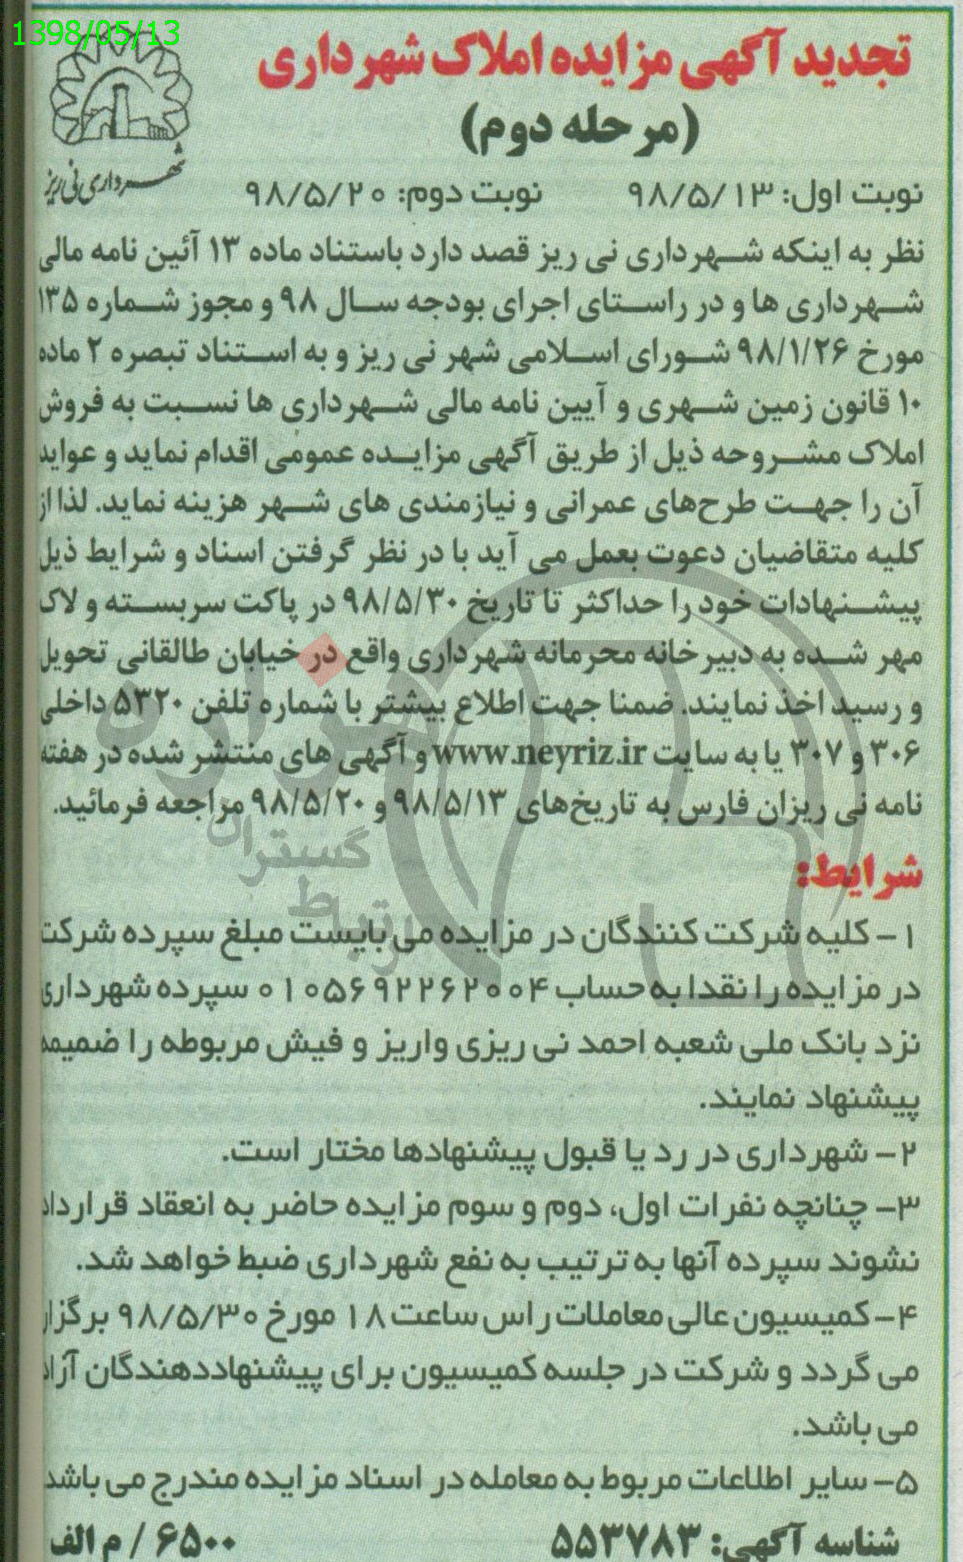 1398/05/13
تجدید آگهی مزایده املاک شهرداری
(مرحله دوم)
شهرداری نی ریز
نوبت اول: ۹۸/۵/۱۳ نوبت دوم: ۹۸/۵/۲۰
نظر به اینکه شهرداری نی ریز قصد دارد باستناد ماده ۱۳ آئین نامه مالی
شهرداری ها و در راستای اجرای بودجه سال ۹۸ و مجوز شماره ۱۳۵
مورخ ۹۸/۱/۲۶ شورای اسلامی شهر نی ریز و به استناد تبصره ۲ ماده
۱۰ قانون زمین شهری و آیین نامه مالی شهرداری ها نسبت به فروش
املاک مشروحه ذیل از طریق آگهی مزایده عمومی اقدام نماید و عواید
آن را جهت طرح‌های عمرانی و نیازمندی های شهر هزینه نماید. لذا از
کلیه متقاضیان دعوت بعمل می آید با در نظر گرفتن اسناد و شرایط ذیل
پیشنهادات خود را حداکثر تا تاریخ ۹۸/۵/۳۰ در پاکت سربسته و لاک
مهر شده به دبیرخانه محرمانه شهرداری واقع در خیابان طالقانی تحویل
و رسید اخذ نمایند. ضمنا جهت اطلاع بیشتر با شماره تلفن ۵۳۲۰ داخلی
۳۰۶ و ۳۰۷ یا به سایت www.neyriz.ir و آگهی های منتشر شده در هفته
نامه نی ریزان فارس به تاریخ‌های ۹۸/۵/۱۳ و ۹۸/۵/۲۰ مراجعه فرمائید.
هزاره
گستران
ارتباط
شرایط:
۱- کلیه شرکت کنندگان در مزایده می بایست مبلغ سپرده شرکت
در مزایده را نقدا به حساب ۰۱۰۵۶۹۲۲۶۲۰۰۴ سپرده شهرداری
نزد بانک ملی شعبه احمد نی ریزی واریز و فیش مربوطه را ضمیمه
پیشنهاد نمایند.
۲- شهرداری در رد یا قبول پیشنهادها مختار است.
۳- چنانچه نفرات اول، دوم و سوم مزایده حاضر به انعقاد قرارداد
نشوند سپرده آنها به ترتیب به نفع شهرداری ضبط خواهد شد.
۴- کمیسیون عالی معاملات راس ساعت ۱۸ مورخ ۹۸/۵/۳۰ برگزار
می گردد و شرکت در جلسه کمیسیون برای پیشنهاددهندگان آزاد
می باشد.
۵- سایر اطلاعات مربوط به معامله در اسناد مزایده مندرج می باشد
شناسه آگهی: ۵۵۳۷۸۳ ۶۵۰۰ / م الف